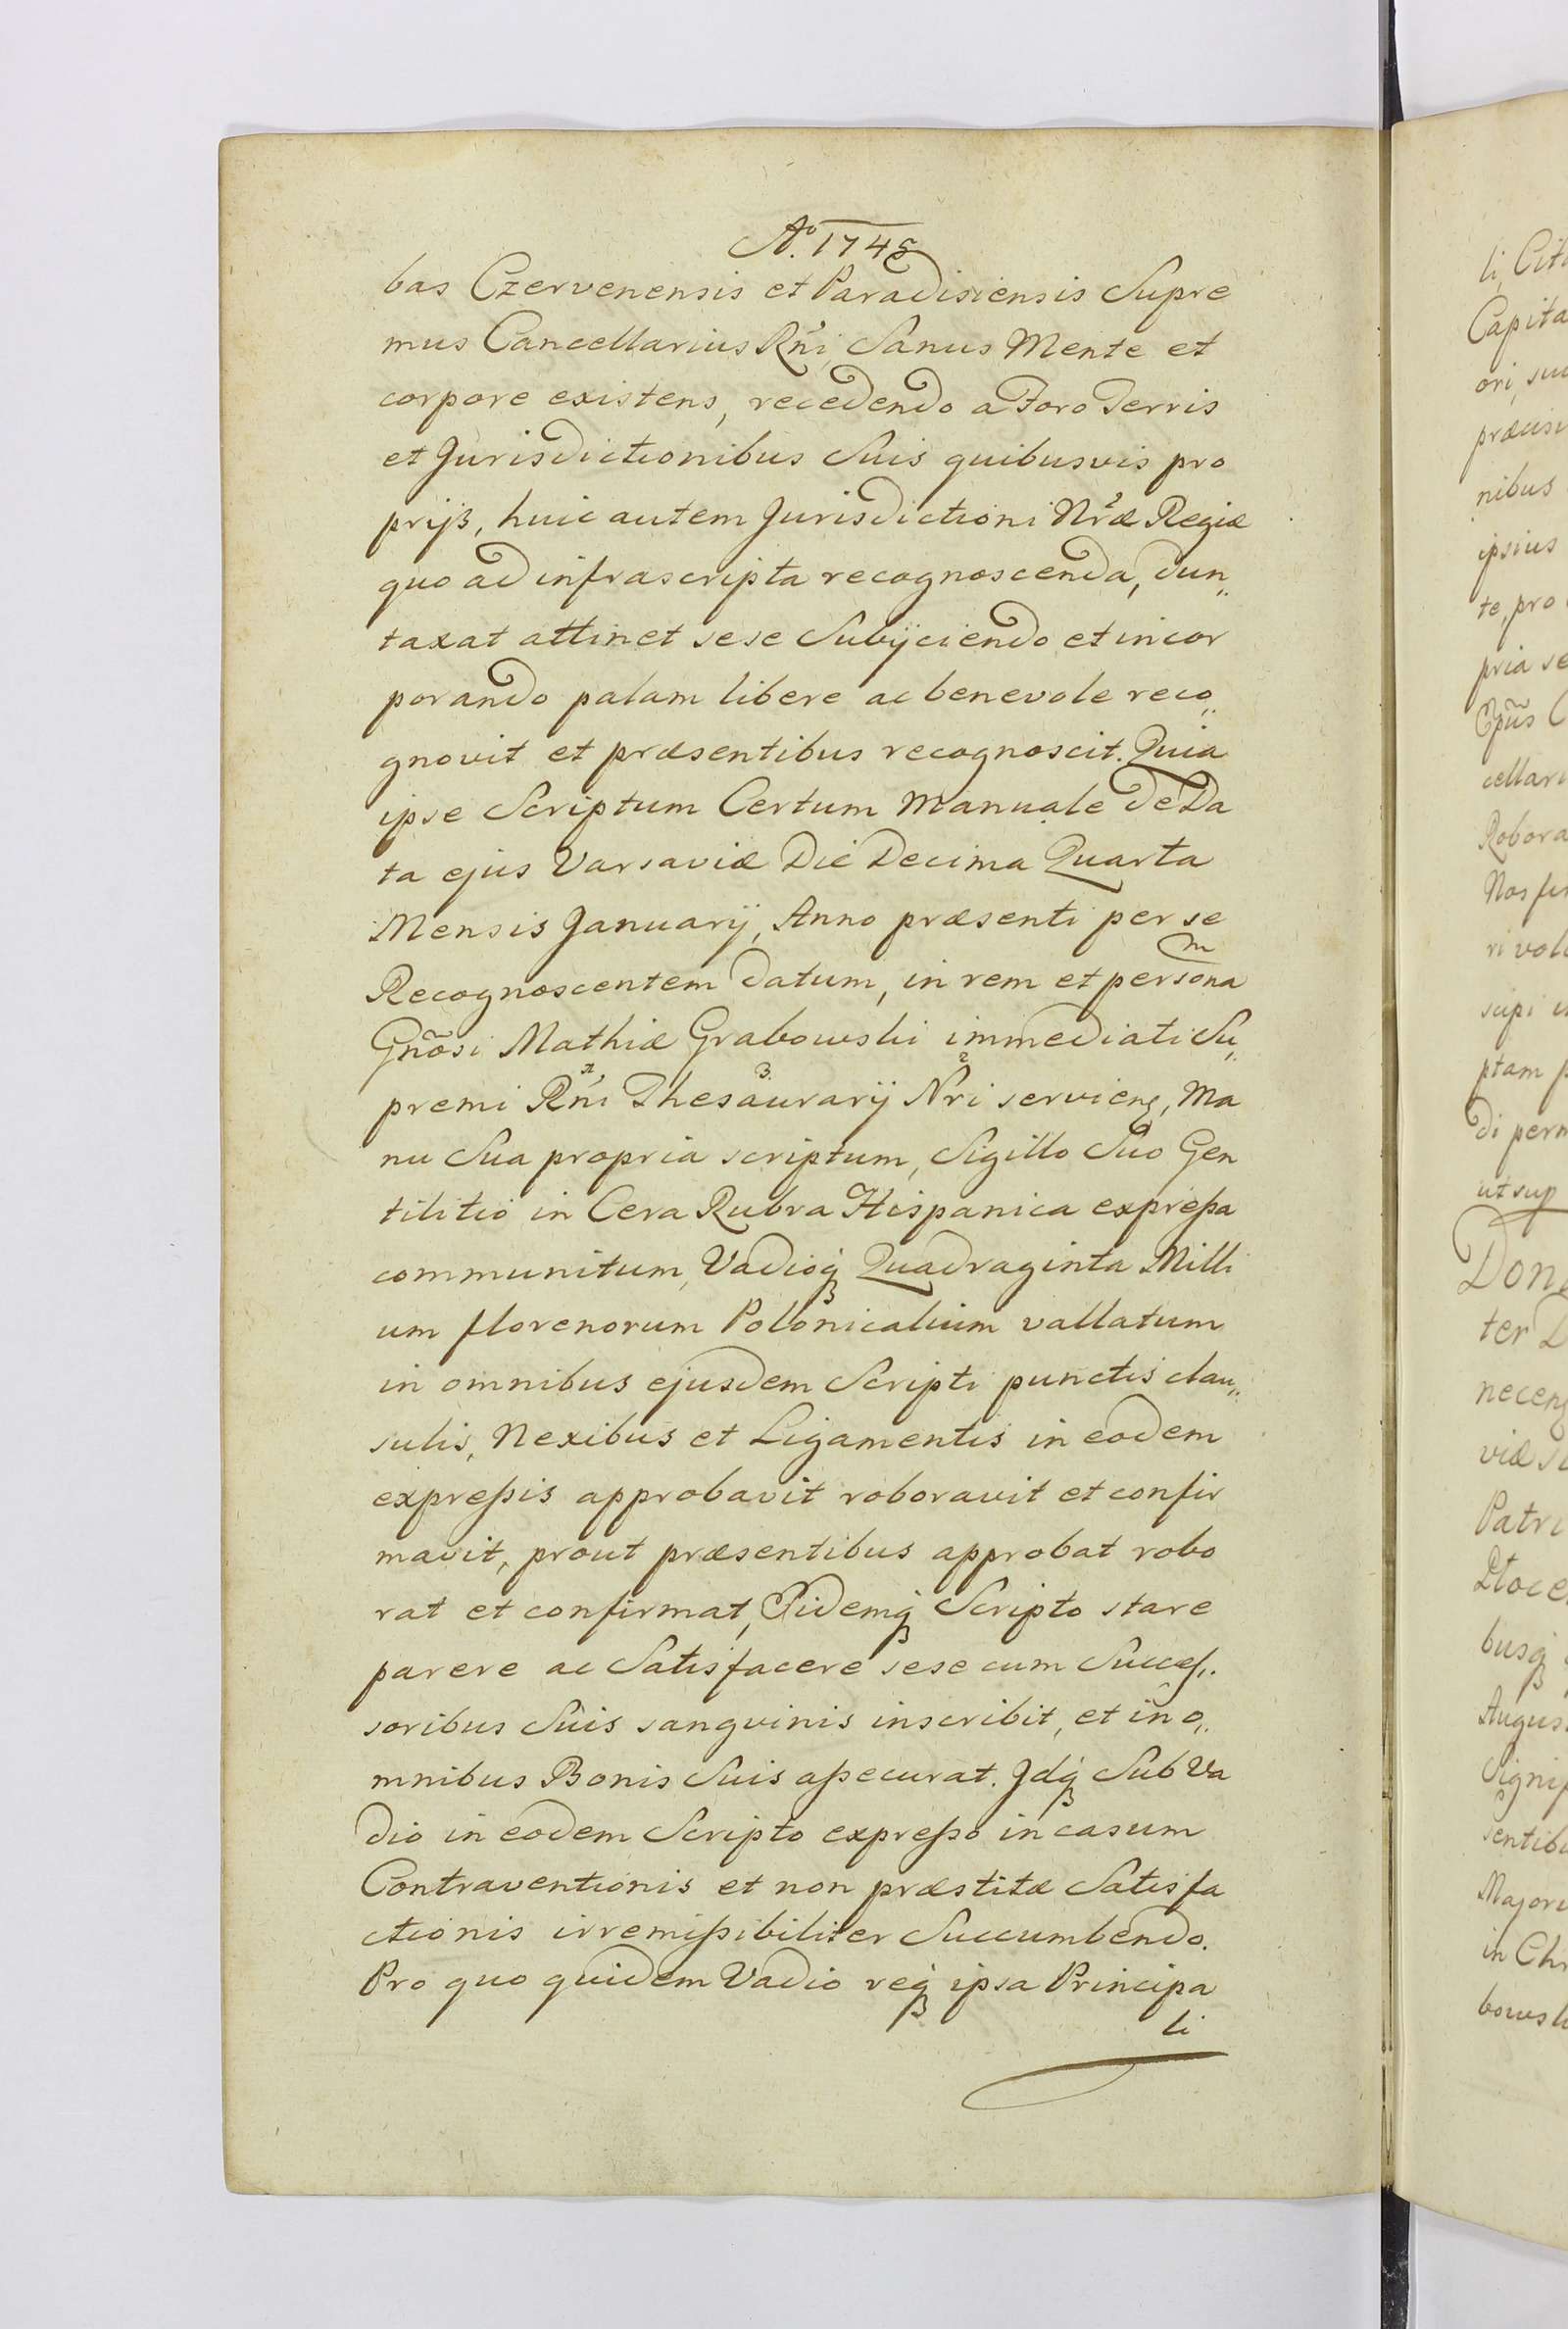 Aº. 1748
bas Czervenensis et Paradisiensis Supre
mus Cancellarius Rñi, Sanus Mente et
corpore existens, recedendo a Foro Terris
et Jurisdictionibus Suis quibusvis pro
prijs, huic autem Jurisdictioni Nræ Regiæ
quo ad infrascripta recognoscenda, dun„
taxat attinet sese Subijciendo et incor
porando palam libere ac benevole reco„
gnovit et præsentibus recognoscit. Quia
ipse Scriptum Certum Manuale de Da
ta ejus Varsaviæ Die Decima Quarta
Mensis Januarij, Anno præsenti per se
m
Recognoscentem datum, in rem et persona
Gnõsi Mathiæ Grabowski immediati Su„
1 3 2
premi Rñi Thesaurarij Nri serviens, Ma
nu Sua propria scriptum, Sigillo Suo Gen
tilitio in Cera Rubra Hispanica expreßa
communitum, Vadioq; Quadraginta Milli
um florenorum Polonicalium vallatum
in omnibus ejusdem Scripti punctis clau„
sulis, Nexibus et Ligamentis in eodem
expreßis approbavit roboravit et confir
mavit, prout præsentibus approbat robo
rat et confirmat, Eidemq; Scripto stare
parere ac Satisfacere sese cum Succes„
soribus Suis sangvinis inscribit, et in o„
mnibus Bonis Suis aßecurat. Jdq; Sub Va
dio in eodem Scripto expreßo in casum
Contraventionis et non præstitæ Satisfa
ctionis irremißibiliter Succumbendo.
Pro quo quidem Vadio req; ipsa Principa
li
li, Cit
Capita
ori, su
præcis
nibus
ipsius
te, pro
pria se
Epũs C
cellari
Robora
Nos
ri vol
scipi
ptam p
di perm
ut sup
Don
ter D
necens
viæ
Patri
Ploce
busq;
Augus
Signif
sentib
Majori
in Chr
bowsk